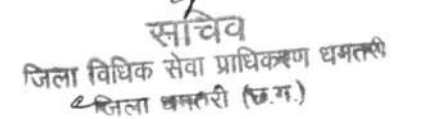 सचिव
जिला विधिक सेवा प्राधिकरण धमतरी
जिला धमतरी (छ.ग.)